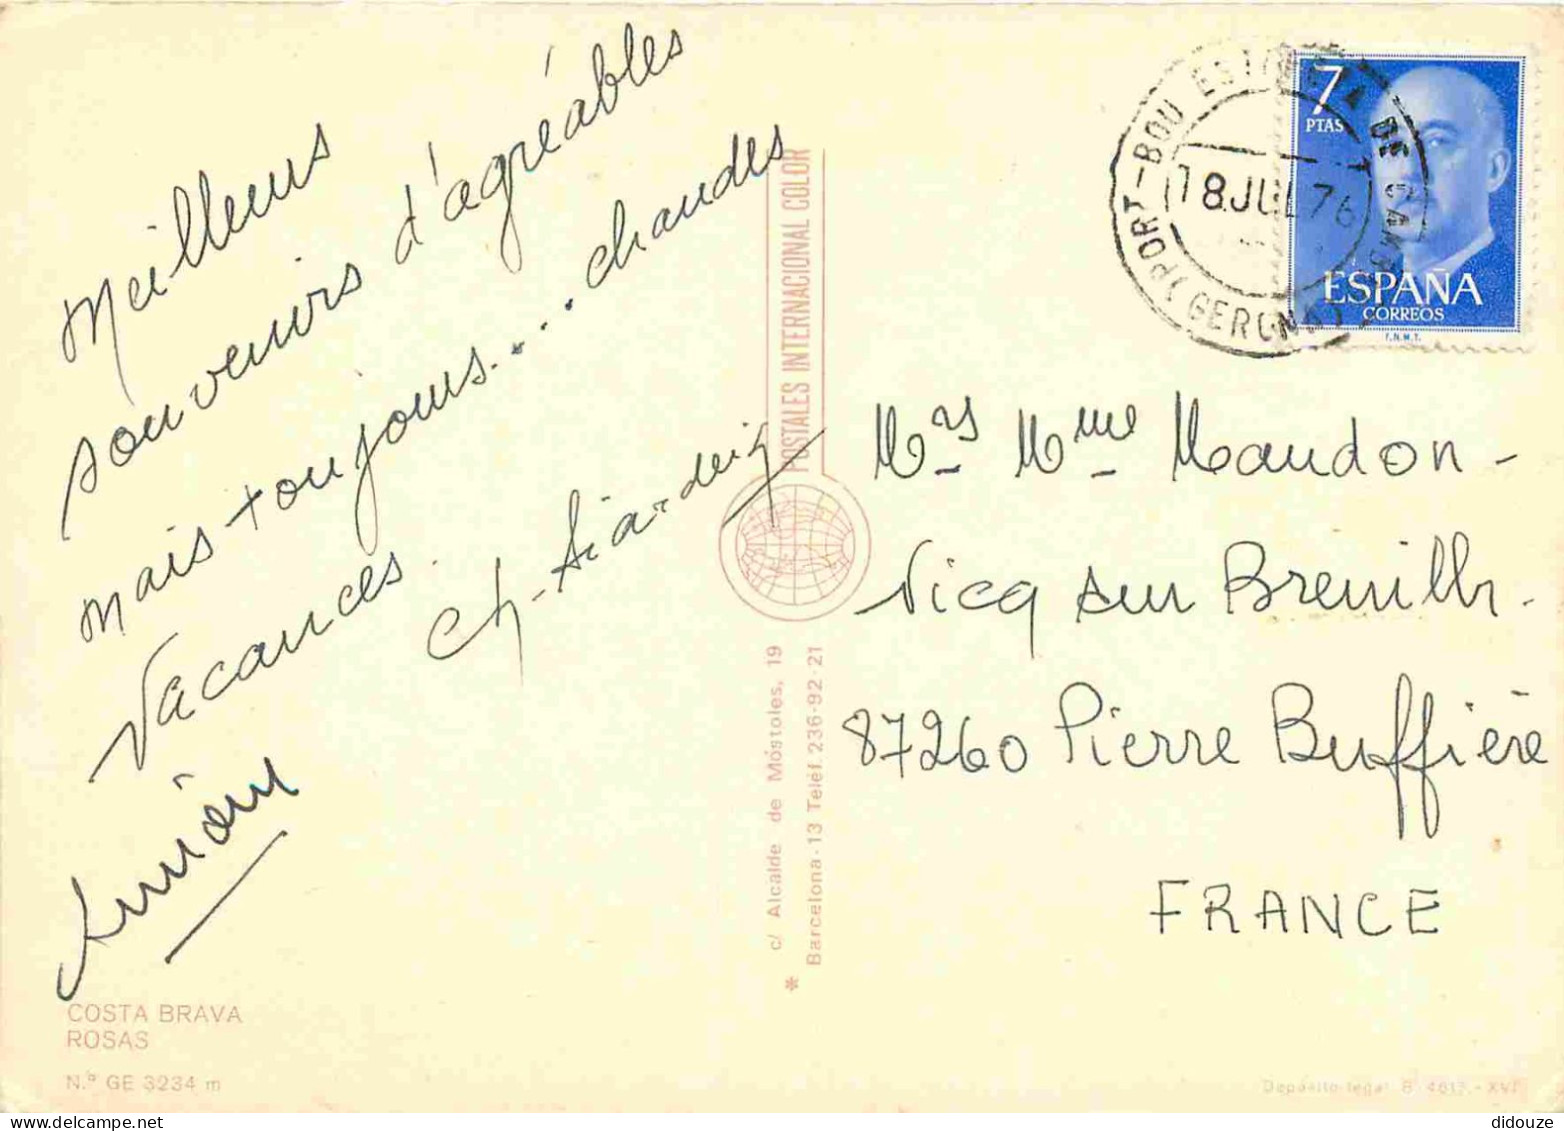 Meilleurs
souvenirs d'agréables
mais toujours... chaudes
Vacances.
COSTA BRAVA
ROSAS
N.º GE 3234 m
POSTALES INTERNACIONAL COLOR
c/ Alcalde de Móstoles, 19
Barcelona-13 Teléf. 236-92-21
*
PORT-BOU ESTAFETA DE CAMBIO (GERONA)
18 JUL 76
7
PTAS
ESPAÑA
CORREOS
F.N.M.T.
Mrs Mme Maudon -
Vicq sur Breuilh -
87260 Pierre Buffière
FRANCE
Depósito legal B.
- XVI
didouze